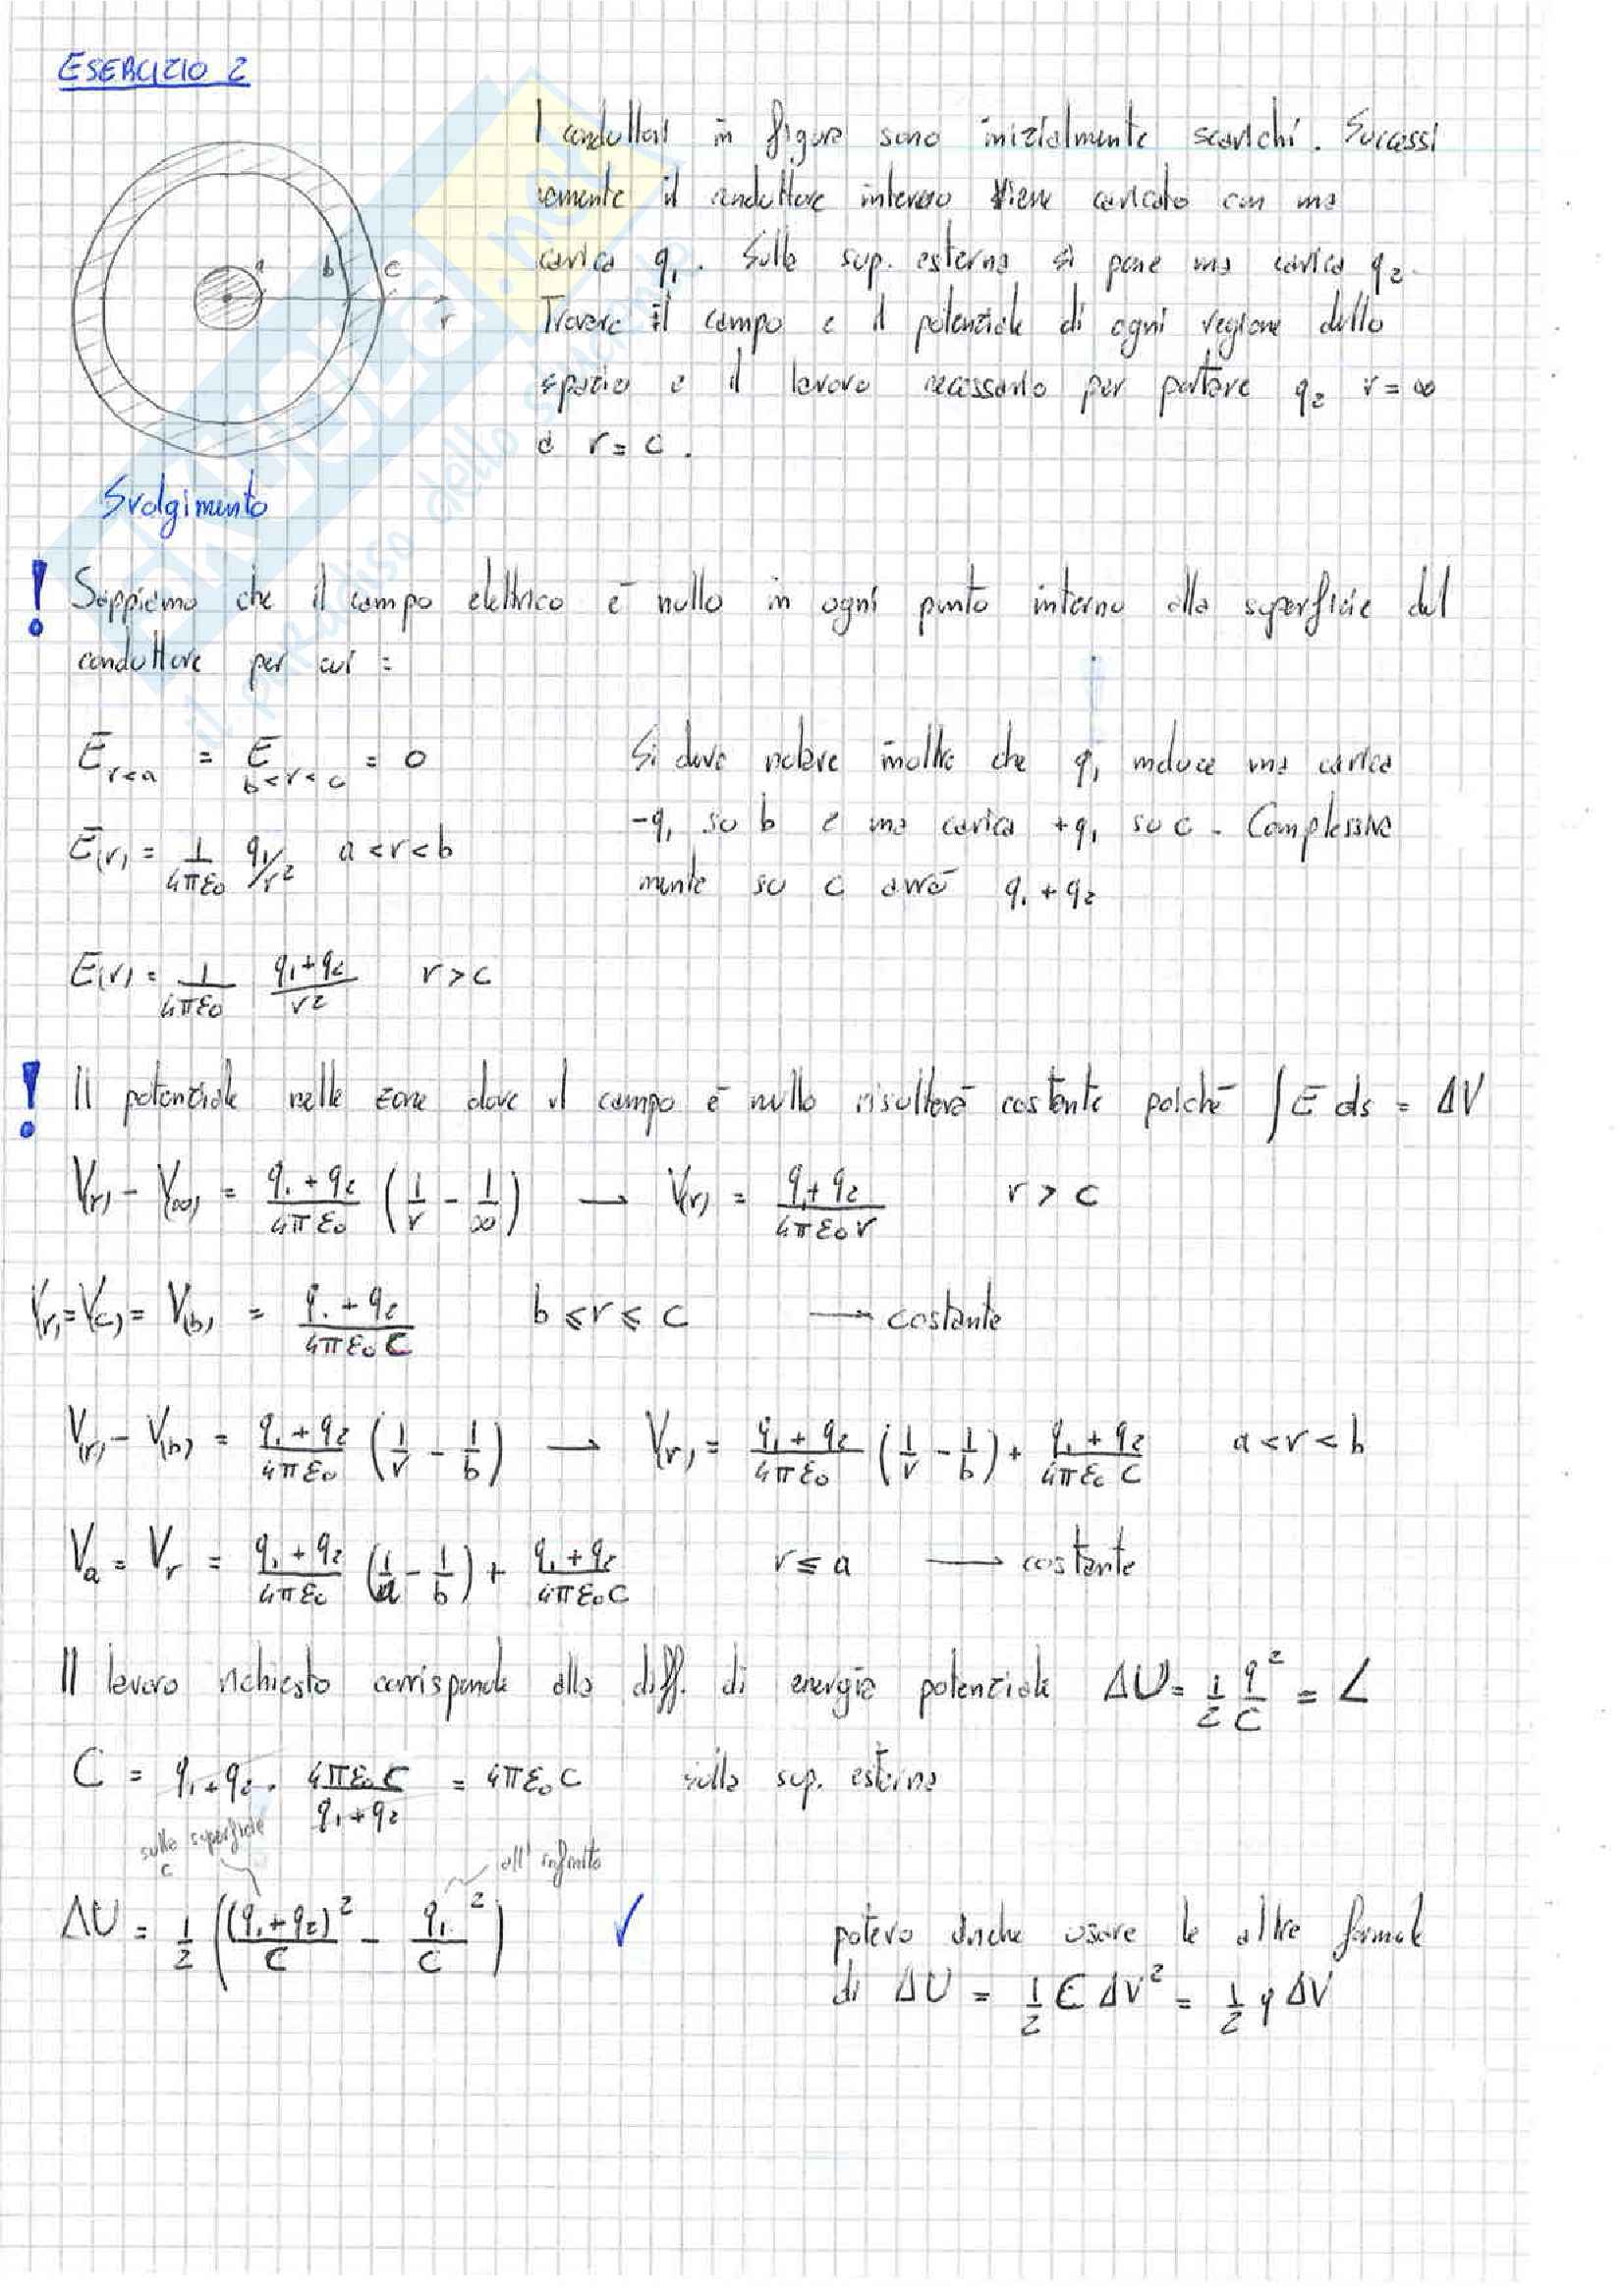 ESERCIZIO 2
I conduttori in figura sono inizialmente scarichi. Successi
vamente il conduttore interno viene caricato con una
carica q₁. Sulla sup. esterna si pone una carica q₂.
Trovare il campo e il potenziale di ogni regione dello
spazio e il lavoro necessario per portare q₂ r = ∞
a r = c.
a b c
r
Svolgimento
! Sappiamo che il campo elettrico è nullo in ogni punto interno alla superficie del
conduttore per cui :
E r<a = E b<r<c = 0
Si deve notare inoltre che q₁ induce una carica
-q₁ su b e una carica +q₁ su c. Complessiva
mente su c avrò q₁ + q₂
E(r) = 1/4πε₀ q₁/r² a < r < b
E(r) = 1/4πε₀ (q₁+q₂)/r² r > c
! Il potenziale nelle zone dove il campo è nullo risulterà costante poichè ∫ E ds = ΔV
V(r) - V(∞) = (q₁+q₂)/4πε₀ (1/r - 1/∞) → V(r) = (q₁+q₂)/4πε₀r r > c
V(r) = V(c) = V(b) = (q₁+q₂)/4πε₀c b ≤ r ≤ c → costante
V(r) - V(b) = (q₁+q₂)/4πε₀ (1/r - 1/b) → V(r) = (q₁+q₂)/4πε₀ (1/r - 1/b) + (q₁+q₂)/4πε₀c a < r < b
Va = Vr = (q₁+q₂)/4πε₀ (1/a - 1/b) + (q₁+q₂)/4πε₀c r ≤ a → costante
Il lavoro richiesto corrisponde alla diff. di energia potenziale ΔU = 1/2 q²/C = L
C = q₁+q₂ · 4πε₀c/(q₁+q₂) = 4πε₀c sulla sup. esterna
sulla superficie
c
all'infinito
ΔU = 1/2 ((q₁+q₂)²/C - q₁²/C) ✓
potevo anche usare le altre formule
di ΔU = 1/2 C ΔV² = 1/2 q ΔV